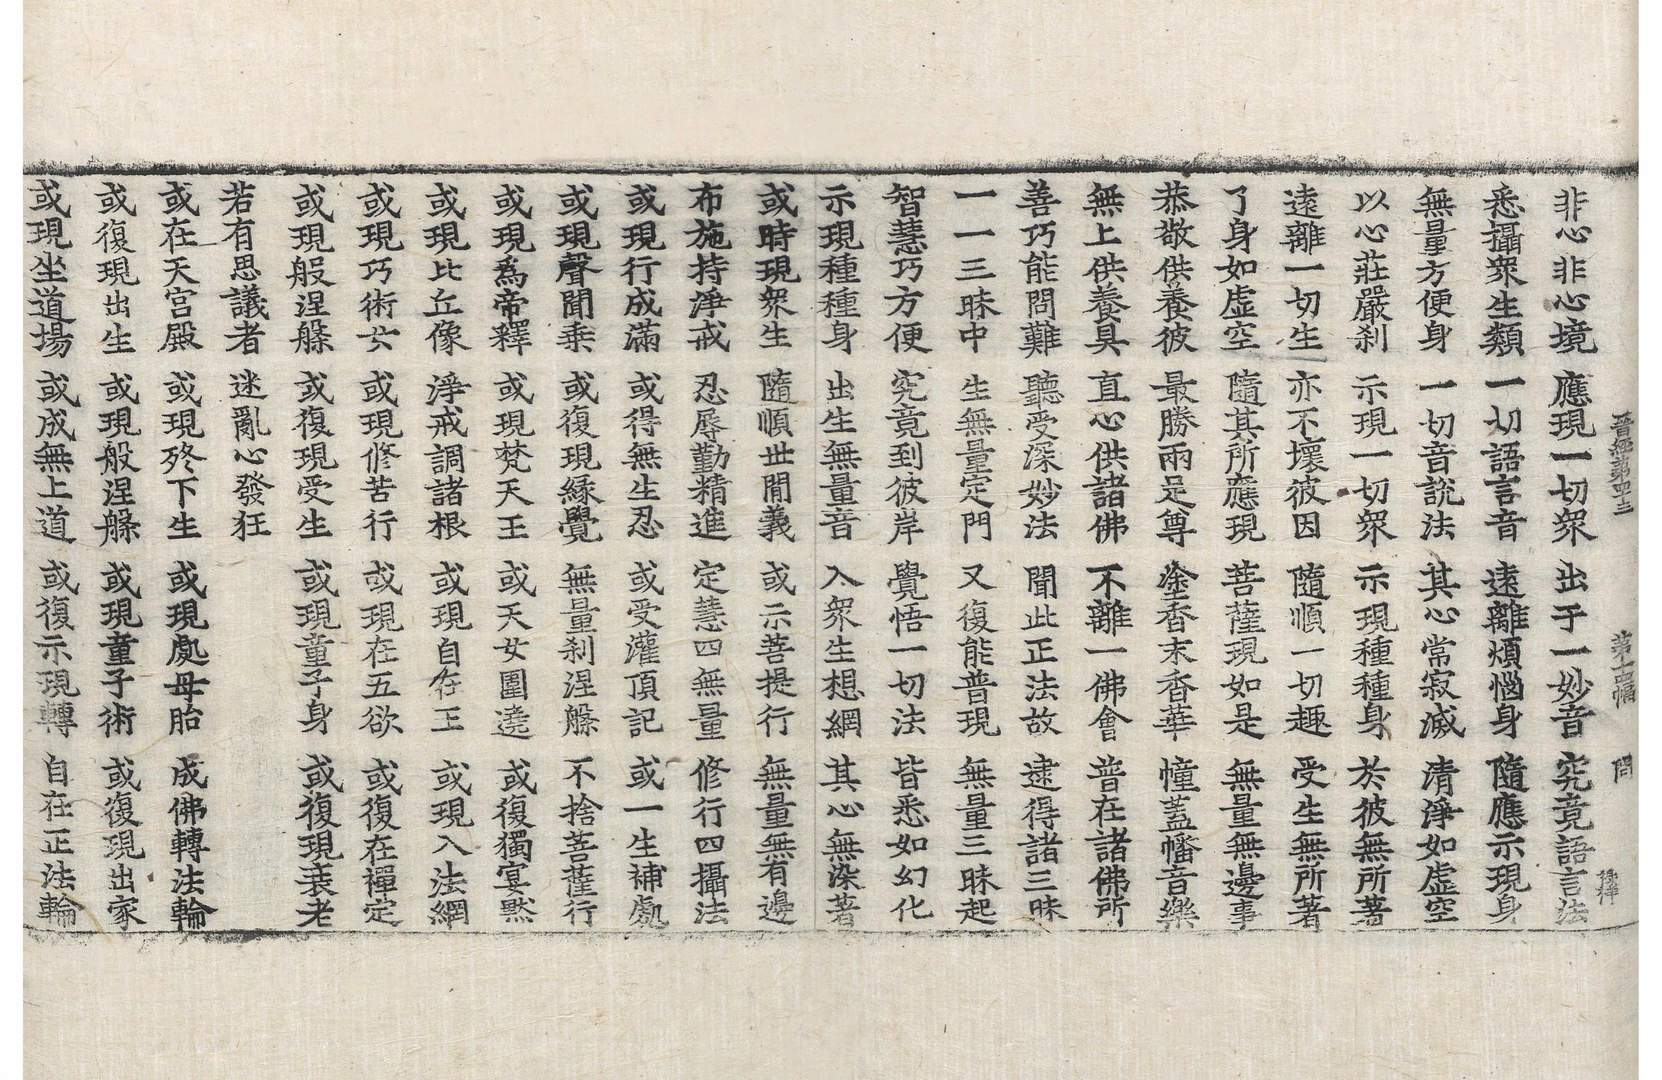 晉經第四十三 第十五幅 問 得釋
非心非心境 應現一切眾 出于一妙音 究竟語言法
悉攝眾生類 一切語言音 遠離煩惱身 隨應示現身
無量方便身 一切音說法 其心常寂滅 清淨如虛空
以心莊嚴剎 示現一切眾 示現種種身 於彼無所著
遠離一切生 亦不壞彼因 隨順一切趣 受生無所著
了身如虛空 隨其所應現 菩薩現如是 無量無邊事
恭敬供養彼 最勝兩足尊 塗香末香華 幢蓋幡音樂
無上供養具 直心供諸佛 不離一佛會 普在諸佛所
善巧能問難 聽受深妙法 聞此正法故 逮得諸三昧
一一三昧中 生無量定門 又復能普現 無量三昧起
智慧巧方便 究竟到彼岸 覺悟一切法 皆悉如幻化
示現種種身 出生無量音 入眾生想網 其心無染著
或時現眾生 隨順世間義 或示菩提行 無量無有邊
布施持淨戒 忍辱勤精進 定慧四無量 修行四攝法
或現行成滿 或得無生忍 或受灌頂記 或一生補處
或現聲聞乘 或復現緣覺 無量剎涅槃 不捨菩薩行
或現為帝釋 或現梵天王 或天女圍遶 或復獨宴默
或現比丘像 淨戒調諸根 或現自在王 或現入法網
或現巧術女 或現修苦行 或現在五欲 或復在禪定
或現般涅槃 或復現受生 或現童子身 或復現衰老
若有思議者 迷亂心發狂
或在天宮殿 或現終下生 或現處母胎 成佛轉法輪
或復現出生 或現般涅槃 或現童子術 或復現出家
或現坐道場 或成無上道 或復示現轉 自在正法輪